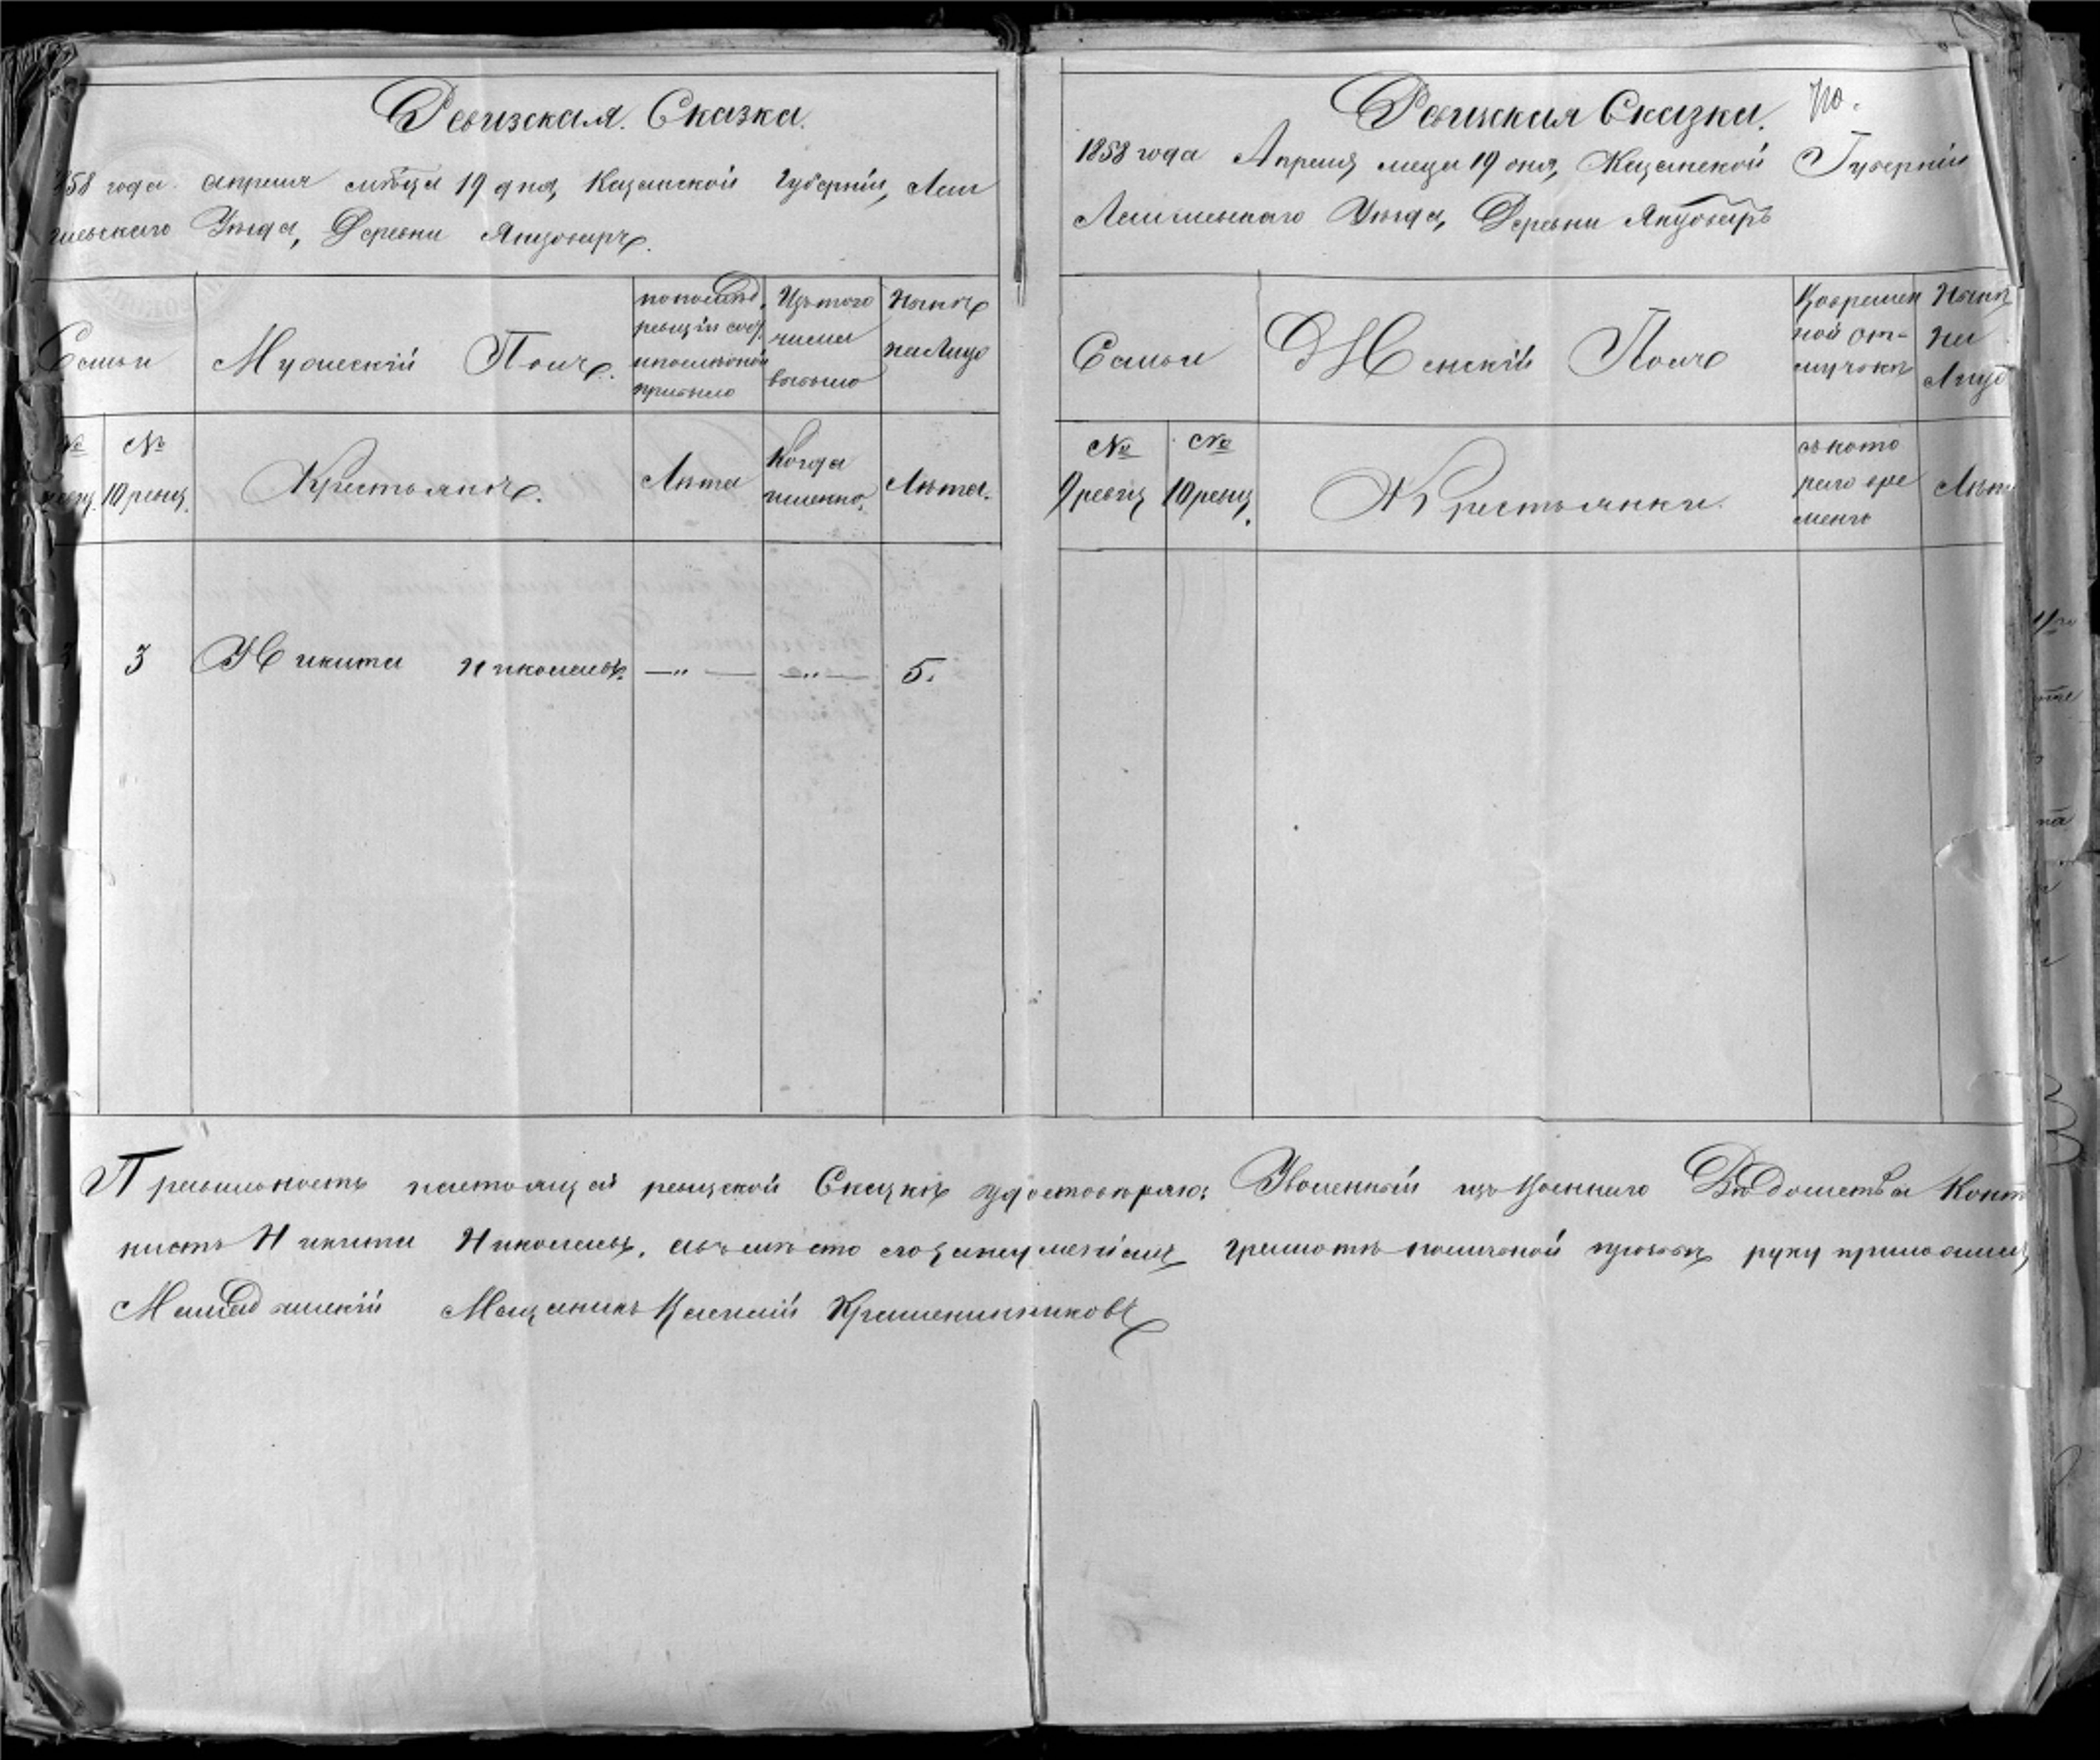 Ревизская Сказка.
858 года апреля месяца 19 дня, Казанской Губерніи, Лаи
шевскаго Уѣзда, Деревни Янцоваръ.
Семьи
Мужескій Полъ.
по послѣд. ревизіи сост. и послѣ оной прибыло
Изъ того числа выбыло
Нынѣ на лицо
№ ревиз.
№ 10 ревиз.
Крестьянъ.
Лѣта
когда именно.
Лѣта.
3 Никита Николаевъ — " — — " — 5.
Ревизская Сказка.
1858 года Апреля меца 19 дня, Казанской Губерніи
Лаишевскаго Уѣзда, Деревни Янцоваръ
Семьи
Женскій Полъ
Во времен ной от- лучкѣ
Нынѣ на Лицо
№ 9 ревиз
№ 10 ревиз.
Крестьянки.
съ кото раго вре мени
Лѣта
Правильность настоящей ревизской Сказки удостовѣряю: Уволенный изъ Военнаго Вѣдомства Кант
нистъ Никита Николаевъ, а вмѣсто его грамотѣ личной прозьбѣ руку приложилъ
Мещанинъ Василій Крашенинниковъ